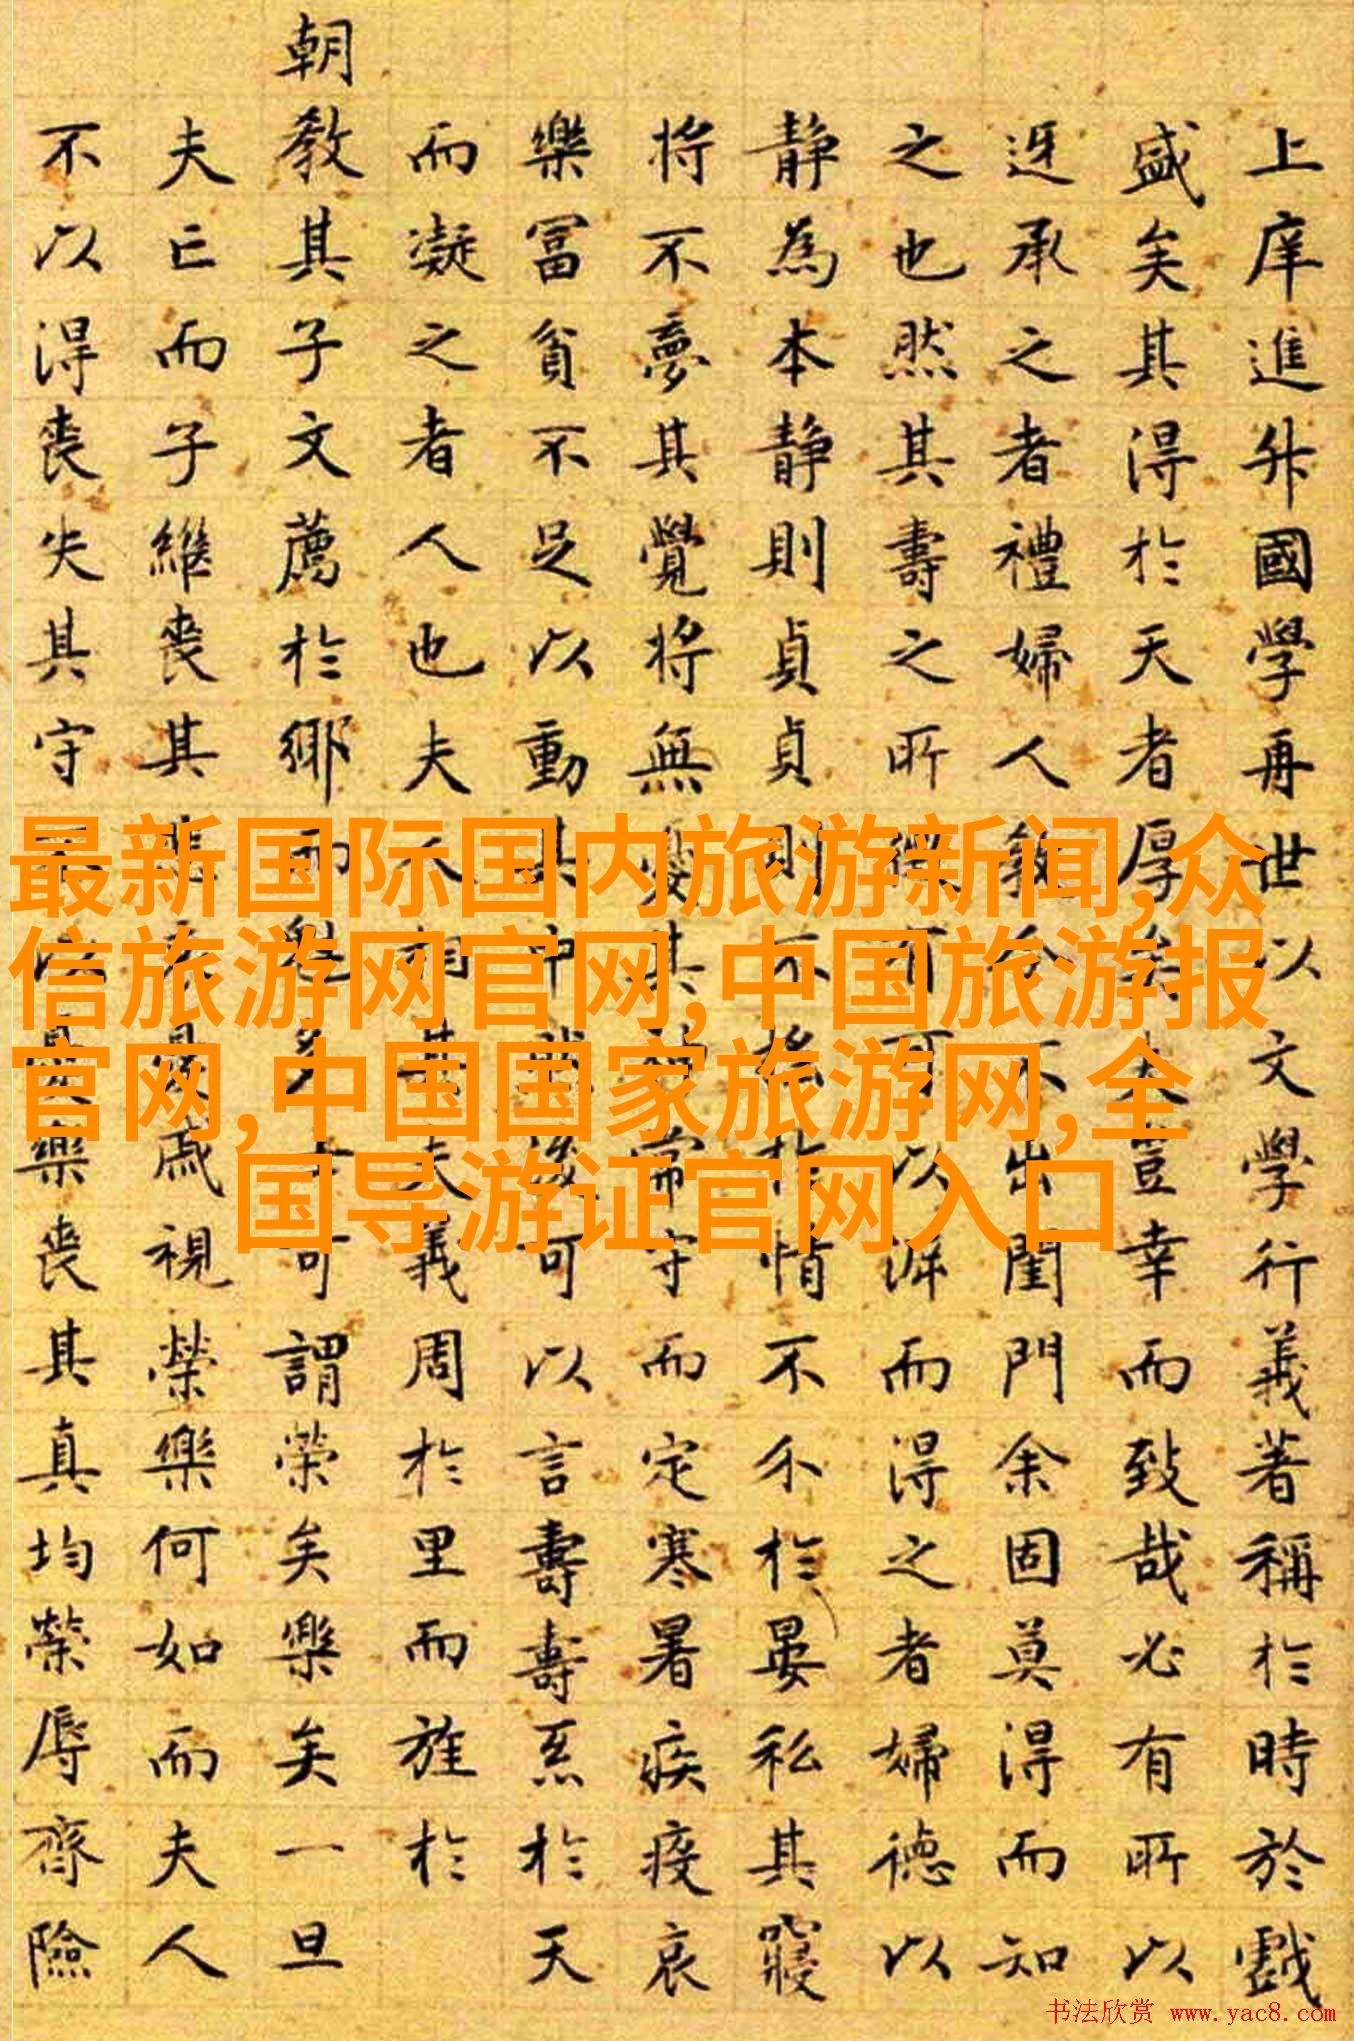 上庠進升國學再世以文學行義著稱於時於戲
盛矣其得於天者厚大豈幸而致哉必有所以
迓承之者禮婦人不出閨門余固莫得而知
之也然其壽之所有可以而得之者婦德以
静為本静則貞貞則不於情不介於晏私其寢
将不夢其覺将無憂其常守而定寒暑疾疫哀
樂冨貧不足以動其中可以言壽壽系於天
而凝之者人也夫人相其夫義周於里而旌於
朝教其子文薦於鄉而可謂荣矣樂矣一旦
夫亡而子繼丧其戚視荣樂何如而夫人
不以得丧失其守不以樂丧其真均荣辱齊險
最新国际国内旅游新闻,众
信旅游网官网,中国旅游报
官网,中国国家旅游网,全
国导游证官网入口
书法欣赏 www.yac8.com